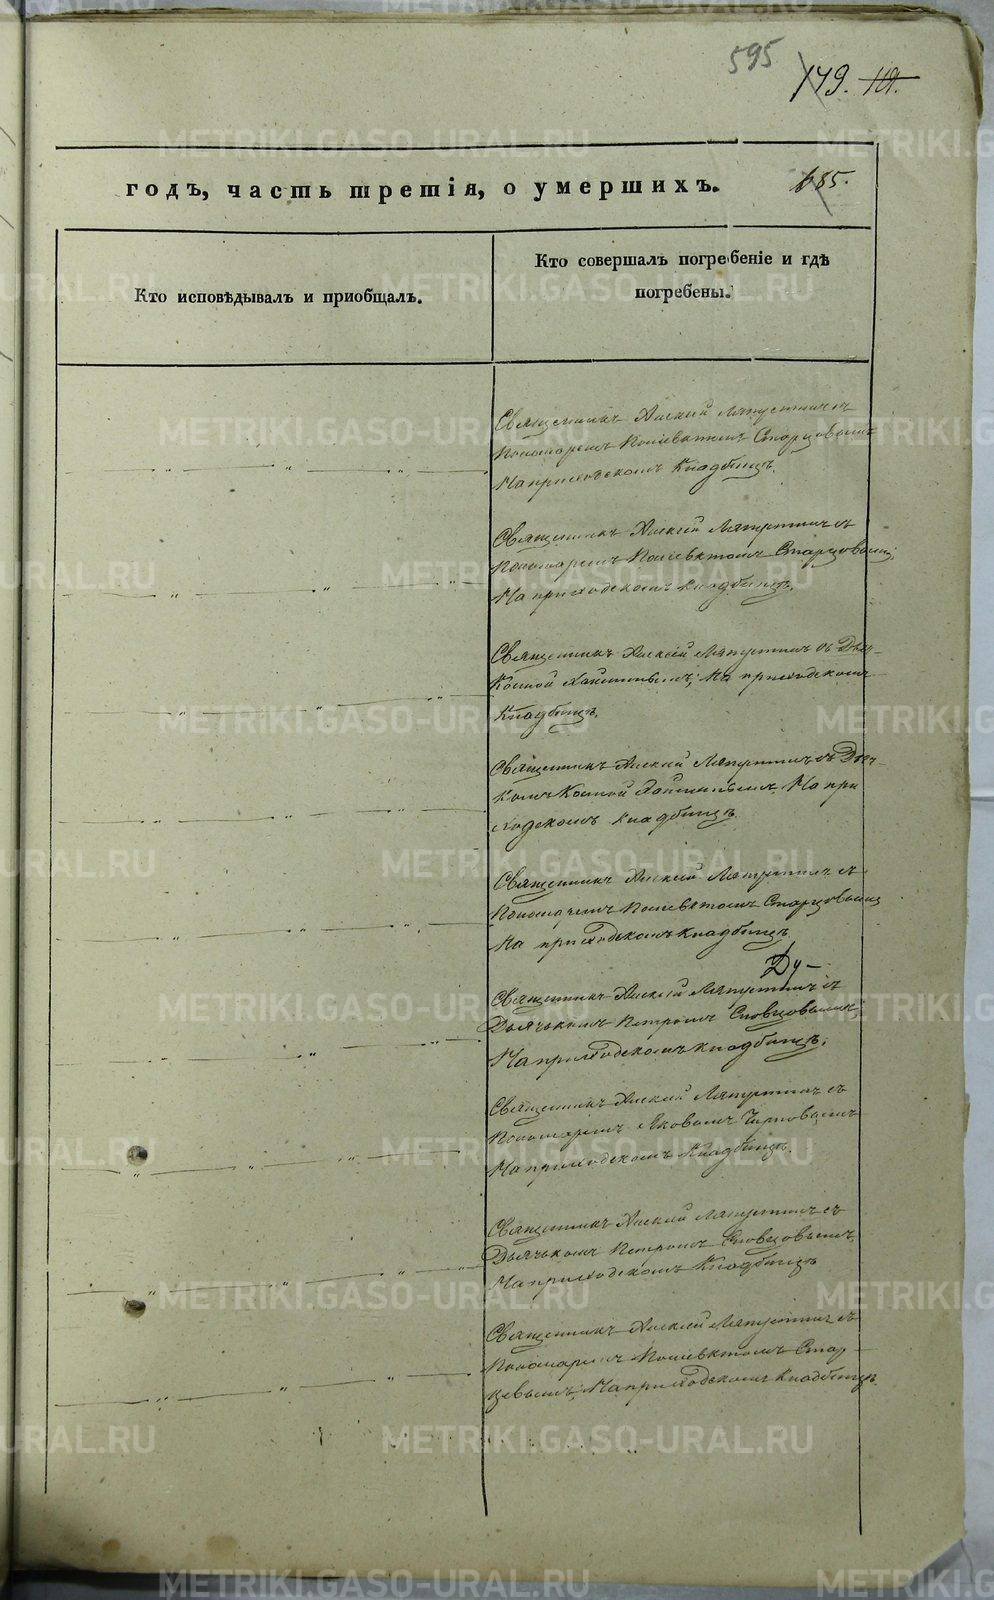 595
179. 119.
годъ, часть третія, о умершихъ.
685.
Кто исповѣдывалъ и приобщалъ.
Кто совершалъ погребеніе и гдѣ
погребены.
Священникъ Алексій Ляпустинъ съ
Пономаремъ Поліевктомъ Старцовымъ
На приходскомъ Кладбищѣ.
Священникъ Алексій Ляпустинъ съ
Пономаремъ Поліевктомъ Старцовымъ;
На приходскомъ кладбищѣ.
Священникъ Алексій Ляпустинъ съ Дьяч-
Космой; На приходскомъ
Кладбищѣ.
Священникъ Алексій Ляпустинъ съ Дьяч-
комъ Космой На при
ходскомъ кладбищѣ.
Священникъ Алексій Ляпустинъ съ
Пономаремъ Поліевктомъ Старцовымъ
На приходскомъ кладбищѣ
Ду-
Священникъ Алексій Ляпустинъ съ
Дьячькомъ Петромъ Словцовымъ,
На приходскомъ кладбищѣ.
Священникъ Алексій Ляпустинъ съ
Пономаремъ Яковомъ
На приходскомъ Кладбищѣ.
Священникъ Алексій Ляпустинъ съ
Дьячькомъ Петромъ Словцовымъ,
На приходскомъ Кладбищѣ
Священникъ Алексій Ляпустинъ съ
Пономаремъ Поліевктомъ Стар-
цевымъ; На приходскомъ Кладбищѣ.
METRIKI.GASO-URAL.RU